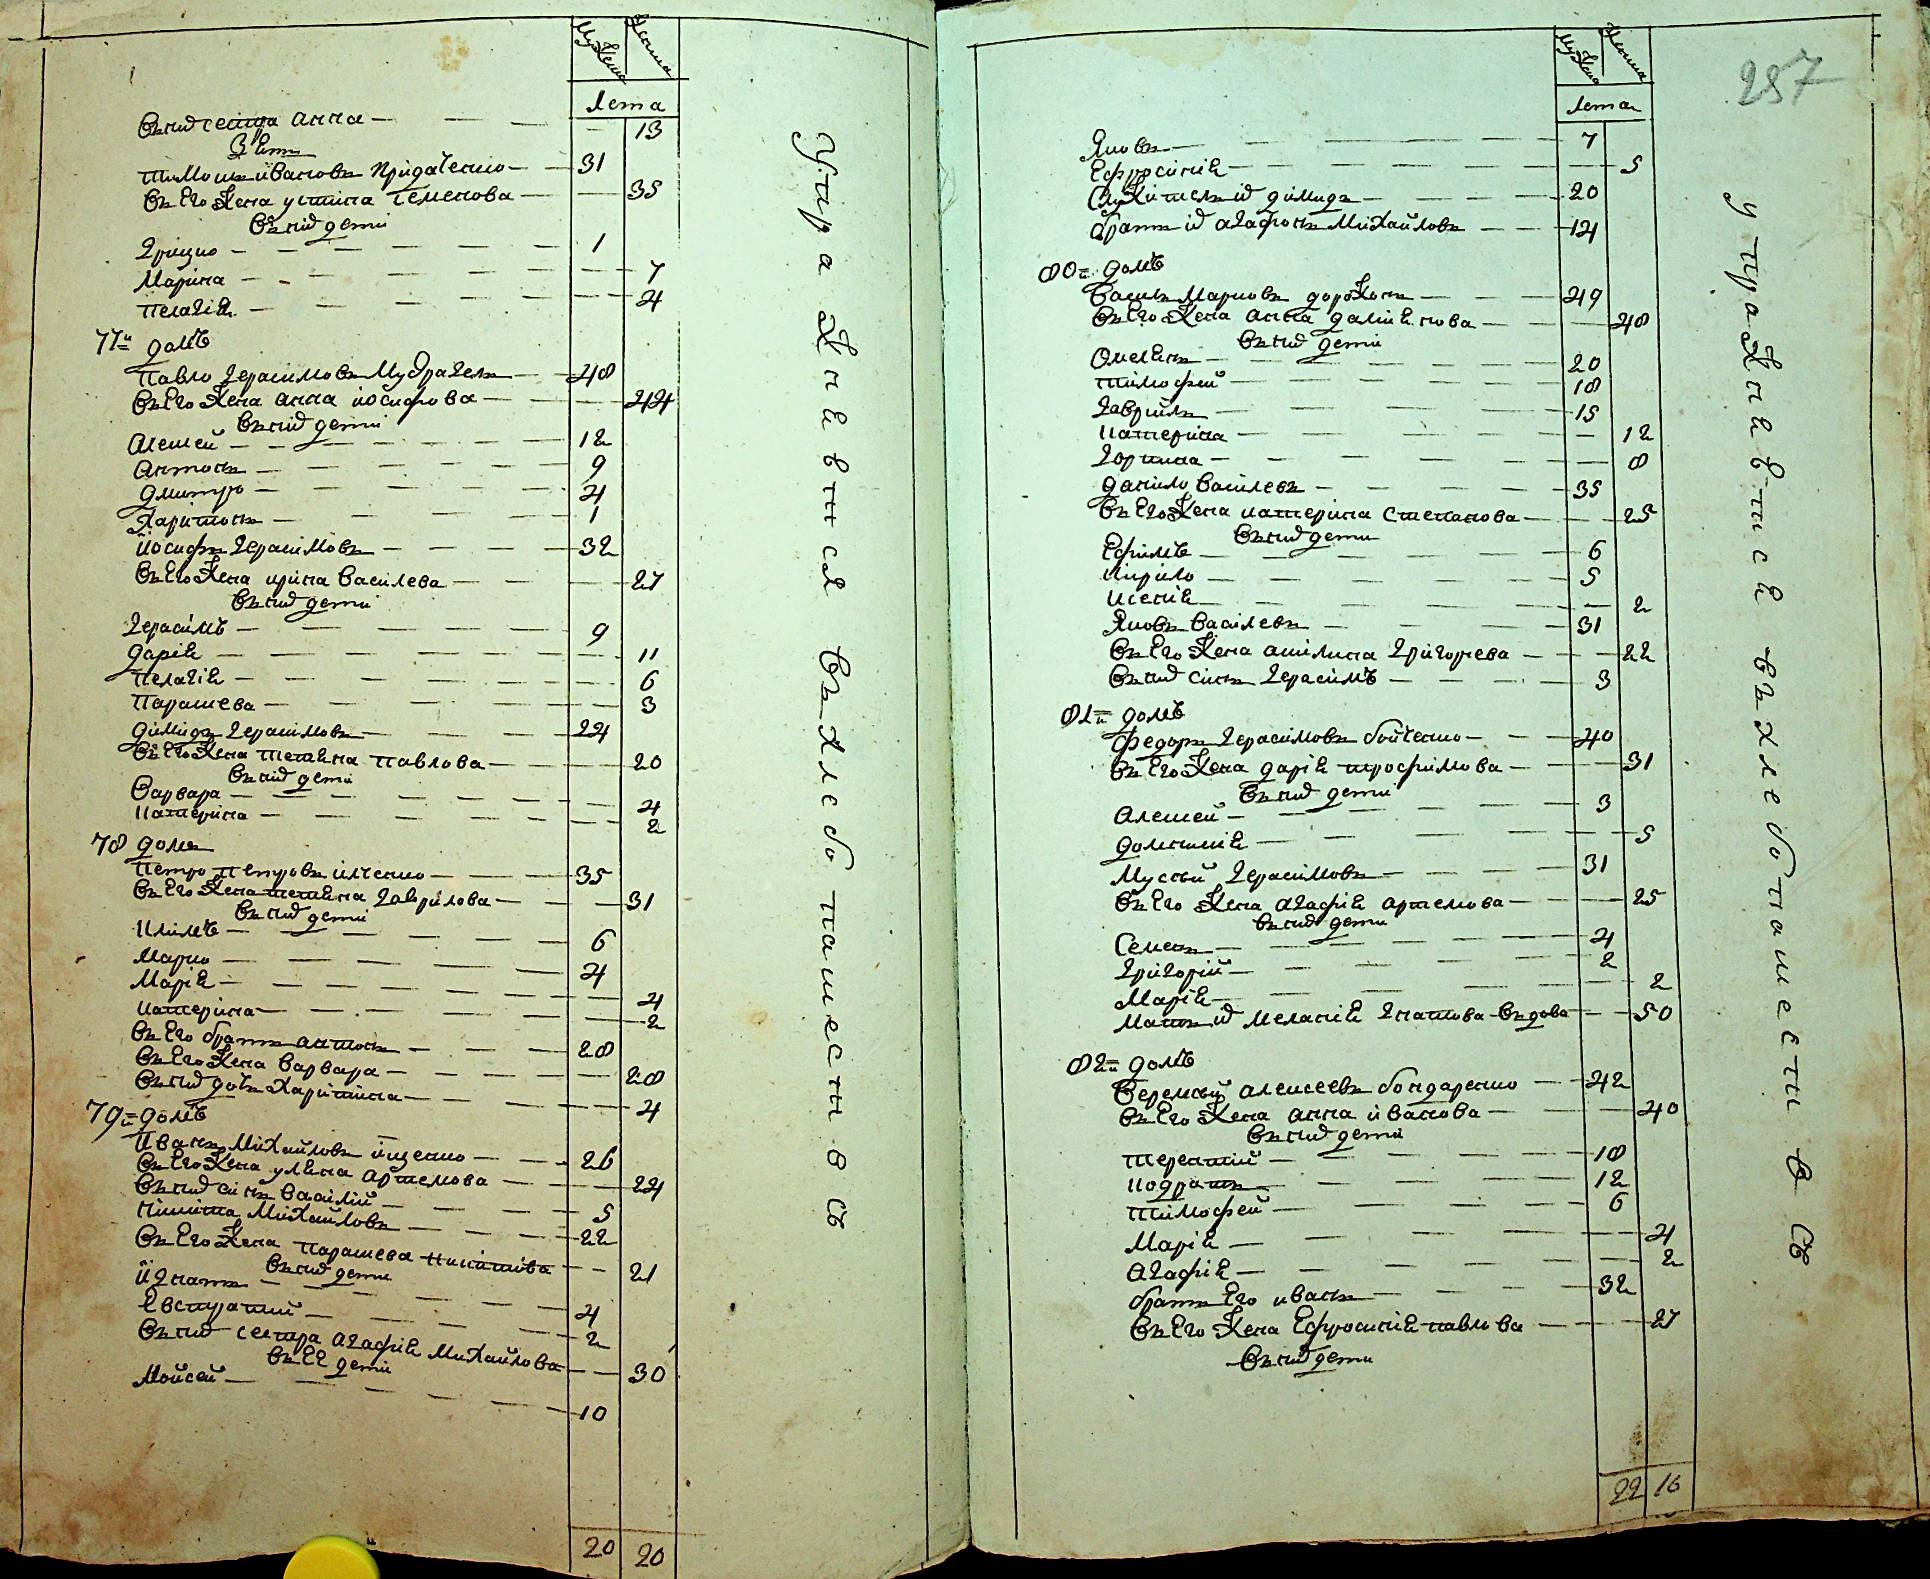 Мужеска Женска
Лета
въ них сестра анна — 13
Зять
тимошъ ивановъ Придаченко — 31
въ Его Жена устина Семенова — 35
въ них дети
Грицко — 1
Марина — 7
пелагія — 4
77й домъ
Павло герасимовъ Мудрагель — 48
въ Его Жена анна иосифова — 44
въ них дети
алексей — 12
антонъ — 9
дмитро — 4
Харитонъ — 1
иосифъ герасимовъ — 32
въ Его Жена ирина василева — 27
въ них дети
герасимъ — 9
дарія — 11
пелагія — 6
параскева — 3
димидъ герасимовъ — 24
въ Его Жена тетяна павлова — 20
въ них дети
варвара — 4
катерина — 2
78 домъ
петро петровъ илченко — 35
въ Его Жена тетяна гаврилова — 31
въ них дети
климъ — 6
марко — 4
Марія — 4
катерина — 2
въ Его братъ антонъ — 28
въ Его Жена варвара — 28
въ них дочъ Харитина — 4
79й домъ
Иванъ Михайловъ ищенко — 26
въ Его Жена уляна артемова — 24
въ них синъ василій — 5
никита Михайловъ — 22
въ Его Жена параскева никитова — 21
въ них дети
игнатъ — 4
Евстратий — 2
въ них сестра агафія Михайлова — 30
въ Ее дети
Мойсей — 10
20 20
Упражнявтся въ хлебопашестновъ
257
Мужеска Женска
Лета
Яковъ — 7
Ефросиния — 5
Служитель их димидъ — 20
братъ их агафонъ Михайловъ — 14
80й домъ
василь Марковъ дорожонъ — 49
въ Его Жена анна далиянова — 48
въ них дети
Омелянъ — 20
тимофей — 18
гаврийлъ — 15
катерина — 12
горпина — 8
данило василевъ — 35
въ Его Жена катерина степанова — 25
въ них дети
Ефимъ — 6
кирило — 5
ксения — 2
Яковъ василевъ — 31
въ Его Жена акилина григорева — 22
въ них синъ герасимъ — 3
81й домъ
федоръ герасимовъ бойченко — 40
въ Его Жена дарія трофимова — 31
въ них дети
алексей — 3
домникія — 5
Мусый герасимовъ — 31
въ Его Жена агафія артемова — 25
въ них дети
Семенъ — 4
григорій — 2
Марія — 2
Мать их меланія гнатова въдова — 50
82й домъ
Веремый алексеевъ бондаренко — 42
въ Его Жена анна ивановa — 40
въ них дети
терентий — 18
кодратъ — 12
тимофей — 6
Марія — 4
агафія — 2
братъ Его иванъ — 32
въ Его Жена Ефросинія павлова — 27
въ них дети
22 16
упражнявтся въ хлебопашестновъ